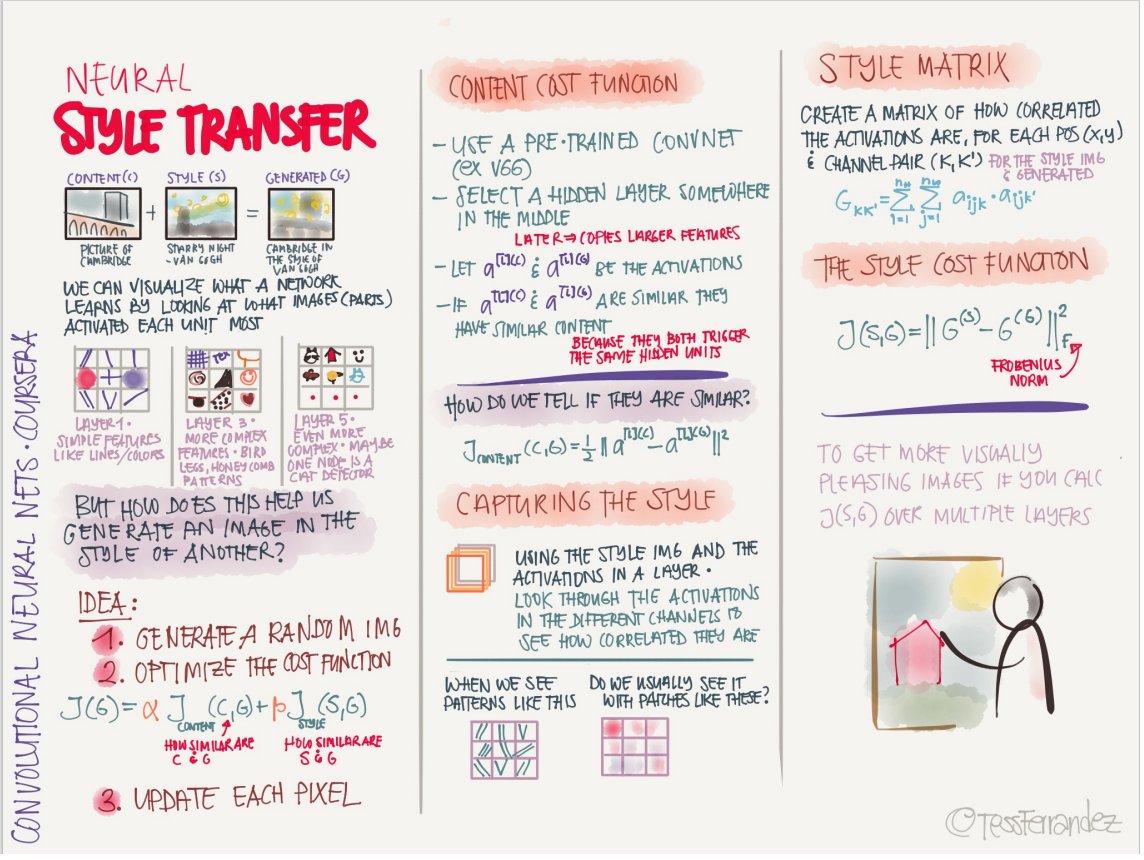 CONVOLUTIONAL NEURAL NETS · COURSERA
NEURAL
STYLE TRANSFER
CONTENT (C)
STYLE (S)
GENERATED (G)
+
=
PICTURE OF
CAMBRIDGE
STARRY NIGHT
- VAN GOGH
CAMBRIDGE IN
THE STYLE OF
VAN GOGH
WE CAN VISUALIZE WHAT A NETWORK
LEARNS BY LOOKING AT WHAT IMAGES (PARTS)
ACTIVATED EACH UNIT MOST
LAYER 1 ·
SIMPLE FEATURES
LIKE LINES/COLORS
LAYER 3 ·
MORE COMPLEX
FEATURES · BIRD
LEGS, HONEYCOMB
PATTERNS
LAYER 5 ·
EVEN MORE
COMPLEX · MAYBE
ONE NODE IS A
CAT DETECTOR
BUT HOW DOES THIS HELP US
GENERATE AN IMAGE IN THE
STYLE OF ANOTHER?
IDEA:
1. GENERATE A RANDOM IMG
2. OPTIMIZE THE COST FUNCTION
J(G) = α J_CONTENT (C,G) + β J_STYLE (S,G)
HOW SIMILAR ARE
C & G
HOW SIMILAR ARE
S & G
3. UPDATE EACH PIXEL
CONTENT COST FUNCTION
- USE A PRE-TRAINED CONVNET
(EX VGG)
- SELECT A HIDDEN LAYER SOMEWHERE
IN THE MIDDLE
LATER ⇒ COPIES LARGER FEATURES
- LET a^[L](C) & a^[L](G) BE THE ACTIVATIONS
- IF a^[L](C) & a^[L](G) ARE SIMILAR THEY
HAVE SIMILAR CONTENT
BECAUSE THEY BOTH TRIGGER
THE SAME HIDDEN UNITS
HOW DO WE TELL IF THEY ARE SIMILAR?
J_CONTENT (C,G) = 1/2 || a^[L](C) - a^[L](G) ||²
CAPTURING THE STYLE
USING THE STYLE IMG AND THE
ACTIVATIONS IN A LAYER ·
LOOK THROUGH THE ACTIVATIONS
IN THE DIFFERENT CHANNELS TO
SEE HOW CORRELATED THEY ARE
WHEN WE SEE
PATTERNS LIKE THIS
DO WE USUALLY SEE IT
WITH PATCHES LIKE THESE?
STYLE MATRIX
CREATE A MATRIX OF HOW CORRELATED
THE ACTIVATIONS ARE, FOR EACH POS (X,Y)
& CHANNEL PAIR (K,K') FOR THE STYLE IMG
& GENERATED
G_KK' = Σ_{i=1}^{n_H} Σ_{j=1}^{n_W} a_ijk · a_ijk'
THE STYLE COST FUNCTION
J(S,G) = || G^(S) - G^(G) ||²_F
FROBENIUS
NORM
TO GET MORE VISUALLY
PLEASING IMAGES IF YOU CALC
J(S,G) OVER MULTIPLE LAYERS
©TessFerrandez